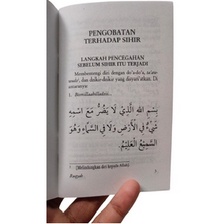 PENGOBATAN
TERHADAP SIHIR
LANGKAH PENCEGAHAN
SEBELUM SIHIR ITU TERJADI
Membentengi diri dengan do'a-do'a, ta'aw-
dan dzikir-dzikir yang disyari'atkan. Di
antaranya:
1.
بِسْمِ اللهِ الَّذِيْ لَا يَضُرُّ مَعَ اسْمِهِ
شَيْءٌ فِي الْأَرْضِ وَلَا فِي السَّمَاءِ وَهُوَ
السَّمِيْعُ الْعَلِيْمُ